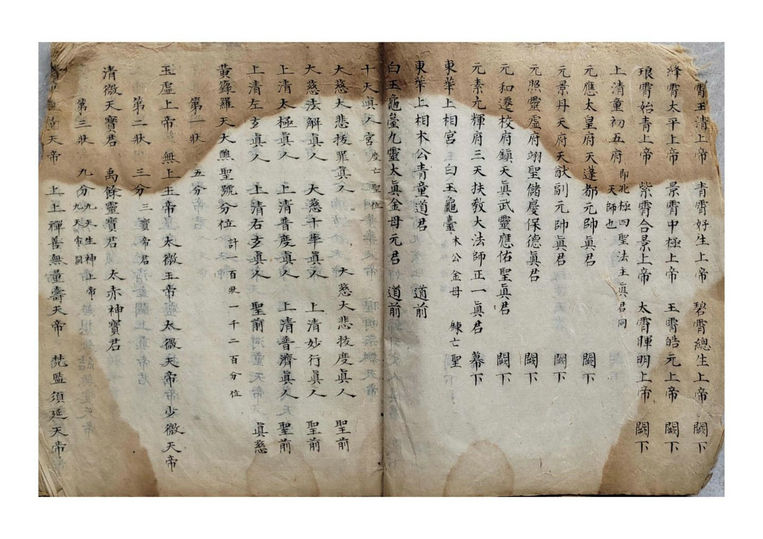 霄玉清上帝 青霄好生上帝 碧霄總生上帝 闕下
絳霄太平上帝 景霄中極上帝 玉霄皓元上帝 闕下
琅霄始青上帝 紫霄合景上帝 太霄暉明上帝 闕下
上清童初五府 即北極四聖法主真君同天師也
元應太皇府天蓬都元帥真君 闕下
元景丹天府天猷副元帥真君 闕下
元照靈虛府翊聖儲慶保德真君 闕下
元和遷校府鎮天真武靈應佑聖真君 闕下
元素元輝府三天扶教大法師正一真君 幕下
東華上相宮 白玉龜臺 木公金母 鍊亡聖
東華上相木公青童道君 道前
白玉龜臺九靈太真金母元君 道前
十天真人宮 亡聖位
大慈大悲拔罪真人 大慈大悲拔度真人 聖前
大慈法解真人 大慈十華真人 上清妙行真人 聖前
上清太極真人 上清普度真人 上清普濟真人 聖前
上清左玄真人 上清右玄真人 聖前 真慈
黃籙羅天大醮聖號分位 計一百狀一千二百分位
第一狀 五分
玉虛上帝 無上玉帝 太微玉帝 太微天帝 少微天帝
第二狀 三分 三寶帝君
清微天寶君 禹餘靈寶君 太赤神寶君
第三狀 九分 九天生神上帝
天帝 上上禪善無量壽天帝 梵監須延天帝